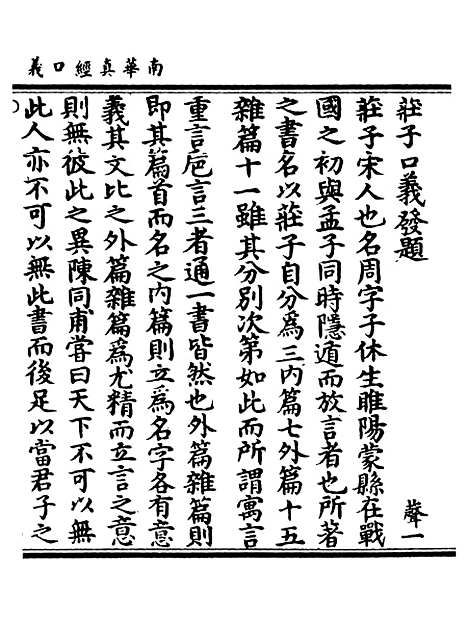 南華真經口義
莊子口義發題　聲一
莊子宋人也名周字子休生睢陽蒙縣在戰
國之初與孟子同時隱遁而放言者也所著
之書名以莊子自分為三內篇七外篇十五
雜篇十一雖其分別次第如此而所謂寓言
重言巵言三者通一書皆然也外篇雜篇則
即其篇首而名之內篇則立為名字各有意
義其文比之外篇雜篇為尤精而立言之意
則無彼此之異陳同甫嘗曰天下不可以無
此人亦不可以無此書而後足以當君子之